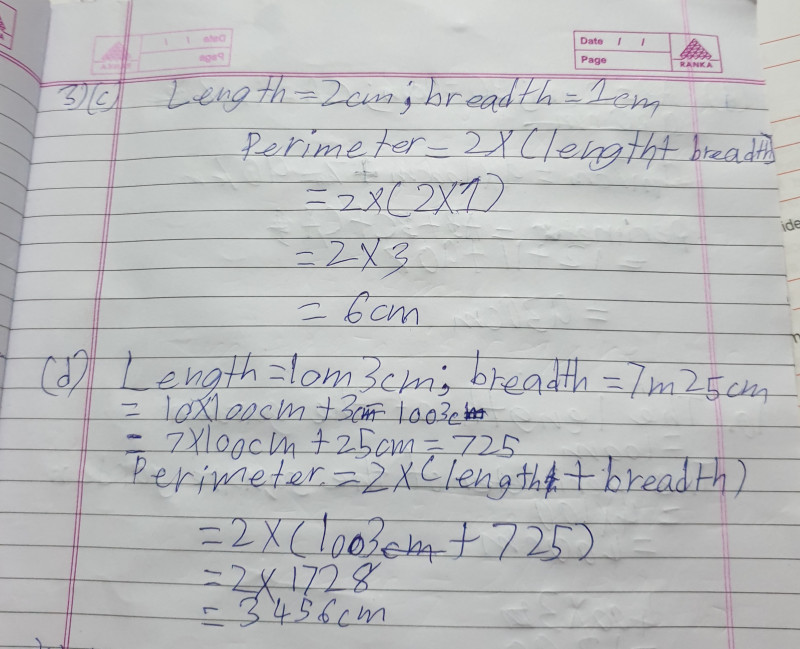 Date / /
Page
RANKA
3)(c) Length = 2cm; breadth = 1cm
Perimeter = 2×(length + breadth)
= 2×(2×1)
= 2×3
= 6cm
(d) Length = 10m3cm; breadth = 7m25cm
= 10×100cm + 3cm = 1003cm
= 7×100cm + 25cm = 725
Perimeter = 2×(length + breadth)
= 2×(1003cm + 725)
= 2×1728
= 3456cm